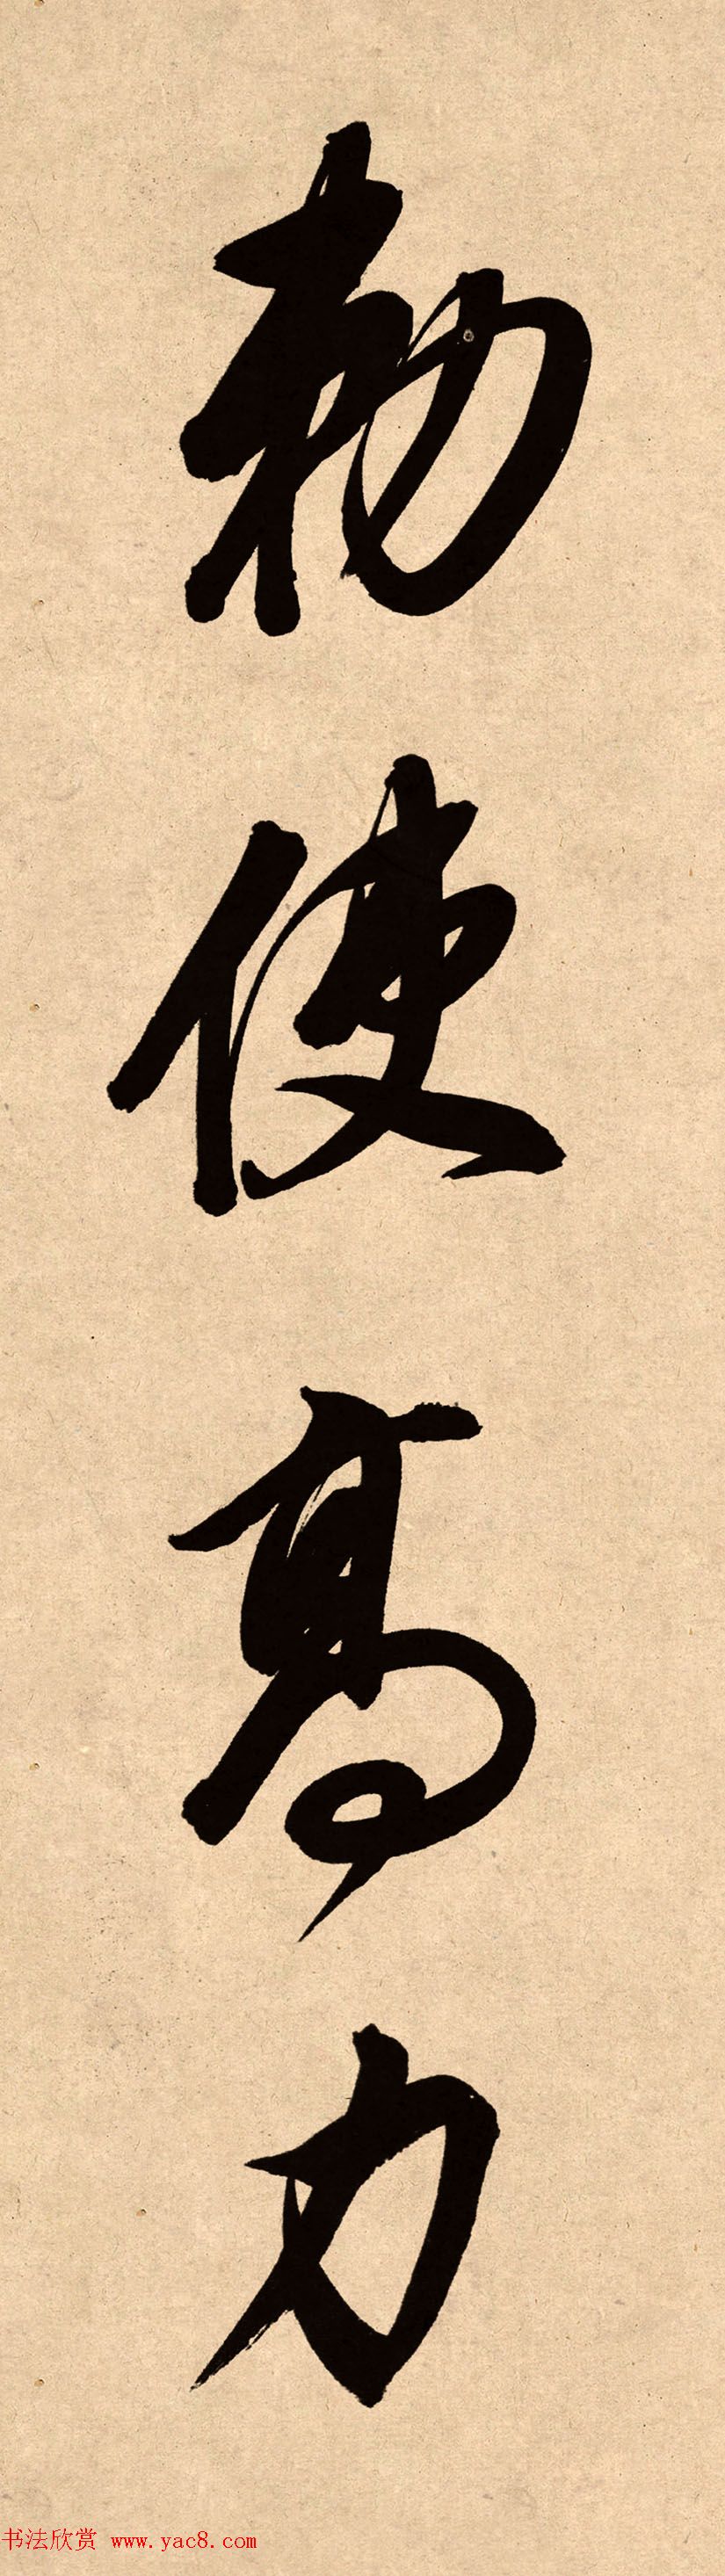 勅使高力
书法欣赏 www.yac8.com